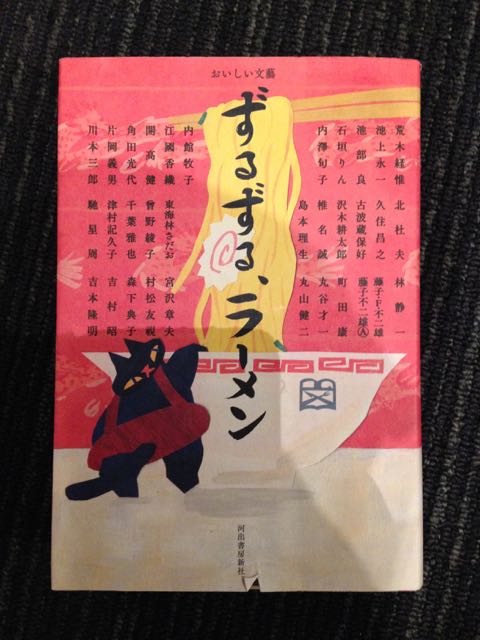 おいしい文藝
ずるずる、ラーメン
荒木経惟
池上永一
池部良
石垣りん
内澤旬子
北杜夫
久住昌之
古波蔵保好
沢木耕太郎
椎名誠
島本理生
林静一
藤子・F・不二雄
藤子不二雄Ⓐ
町田康
丸谷才一
丸山健二
内館牧子
江國香織
開高健
角田光代
片岡義男
川本三郎
東海林さだお
曾野綾子
千葉雅也
津村記久子
馳星周
宮沢章夫
村松友視
森下典子
吉村昭
吉本隆明
河出書房新社